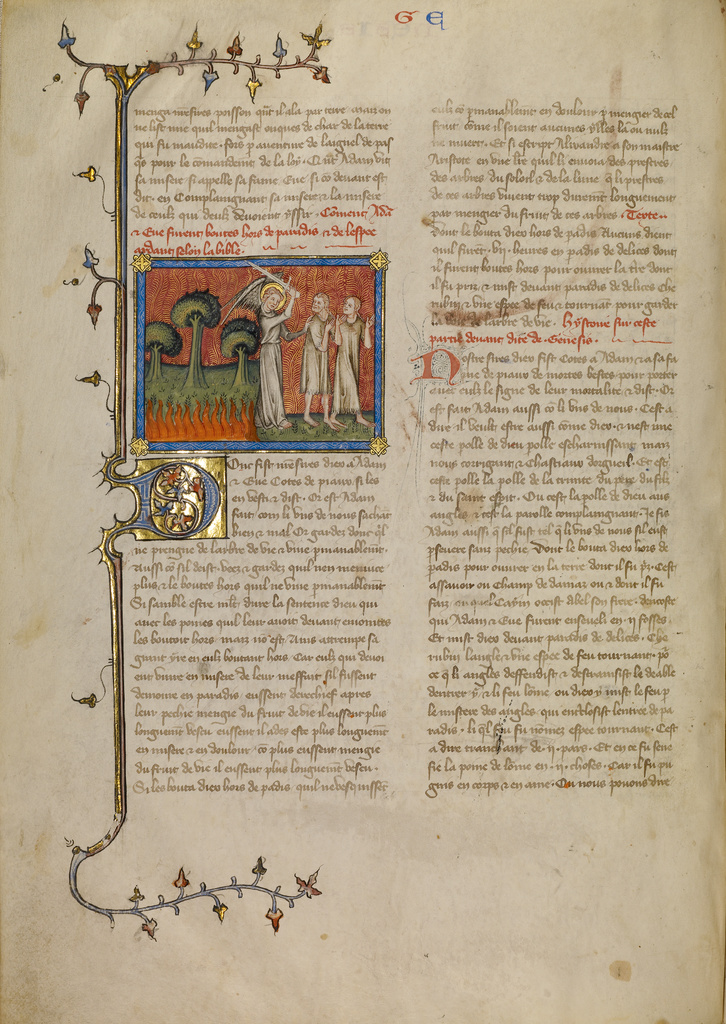 G E
menga nresires poisson
ne list une quil mengast onques de char de la terre
qui fu maudite
po pour le comandemt de la loy Adam vit
sa misere si appelle sa fame Eue si co devant est
dit en complaingnant sa misere & la misere
de ceulz qui deulz devoient yssir Coment Adā
& Eue furent boutes hors de paradis & de lespee
ardant selon la bible
Que fist nresires dieu a Adam
& Eue Cotes de piaux si les
en vesti & dist Or est Adam
fait com li uns de nous sachāt
bien & mal Or gardez donc ql
ne prengne de larbre de vie & vive pmanablemt
Aussi co sil deist veez & gardez quil nen menuce
plus & le boutes hors quil ne vive pmanablemt
Si samble estre mlt dure la sentence dieu qui
avec les poines quil leur avoit devant enointes
les boutoit hors maiz no est Ains attrempe sa
grant yre en eulz boutant hors Car eulz qui devoi
ent vivre en misere de leur meffait sil fussent
demoure en paradis eussent derechief apres
leur pechie mengie du fruit de vie il eussent plus
longuemt vescu eussent il ades este plus longuemt
en misere & en doulour co plus eussent mengie
du fruit de vie il eussent plus longuemt vescu
Si les bouta dieu hors de padis quil ne vesquissēt
eulz co pmanablemt en doulour p mengier de cel
fruit come il soient aucunes ylles la ou nulz
ne muert Et si escript Alixandre a son maistre
Aristote en une lre quil li envoia des prestres
des arbres du soloil & de la lune q li prestres
de ces arbres vivent trop duremt longuement
par mengier du fruit de ces arbres Texte
Dont le bouta dieu hors de padis Aucuns dient
quil furēt vii heures en padis de delices dont
il furent boutes hors pour ouvrer la tre dont
il fu pris & mist devant paradis de delices che
rubin & une espee de feu & tournāt pour garder
la voie de larbre de vie hystoire sur ceste
partie devant dite de Genesis
Nostre sires dieu fist Cotes a Adam & a sa fa
me de piaux de mortes bestes pour porter
avec eulz le signe de leur mortalite & dist Or
est fait Adam aussi co li uns de nous Cest a
dire il veult estre aussi come dieu & nest une
ceste polle de dieu polle escharnissant maiz
nous corrigant & chastiant dorgueil Et est
ceste polle la polle de la trinite du pere du filz
& du saint espit Ou cest la polle de dieu aus
angles & cest la parolle complaingnant Je fis
Adam aussi q sil fust tel q li uns de nous sil eust
psevere sans pechie Dont le bouta dieu hors de
padis pour ouvrer en la terre dont il fu ps Cest
assavoir ou Champ de damas ou & dont il fu
fait ou quel Caym occist abel son frere dencoste
qui Adam & Eue furent enseveli en ii fosses
Et mist dieu devant paradis de delices Che
rubin langle & une espee de feu tournant po
ce q li angles deffendist & destraisist le deable
dentrer y & li feu lome ou dieu y mist le feu p
le mistere des angles qui enclosist lentree de pa
radis li ql feu fu nomez espee tournant Cest
a dire tranchant de ii pars Et en ce fu sene
fie la poine de lome en ii choses Car il fu pu
gnis en corps & en ame Ou nous povons dire